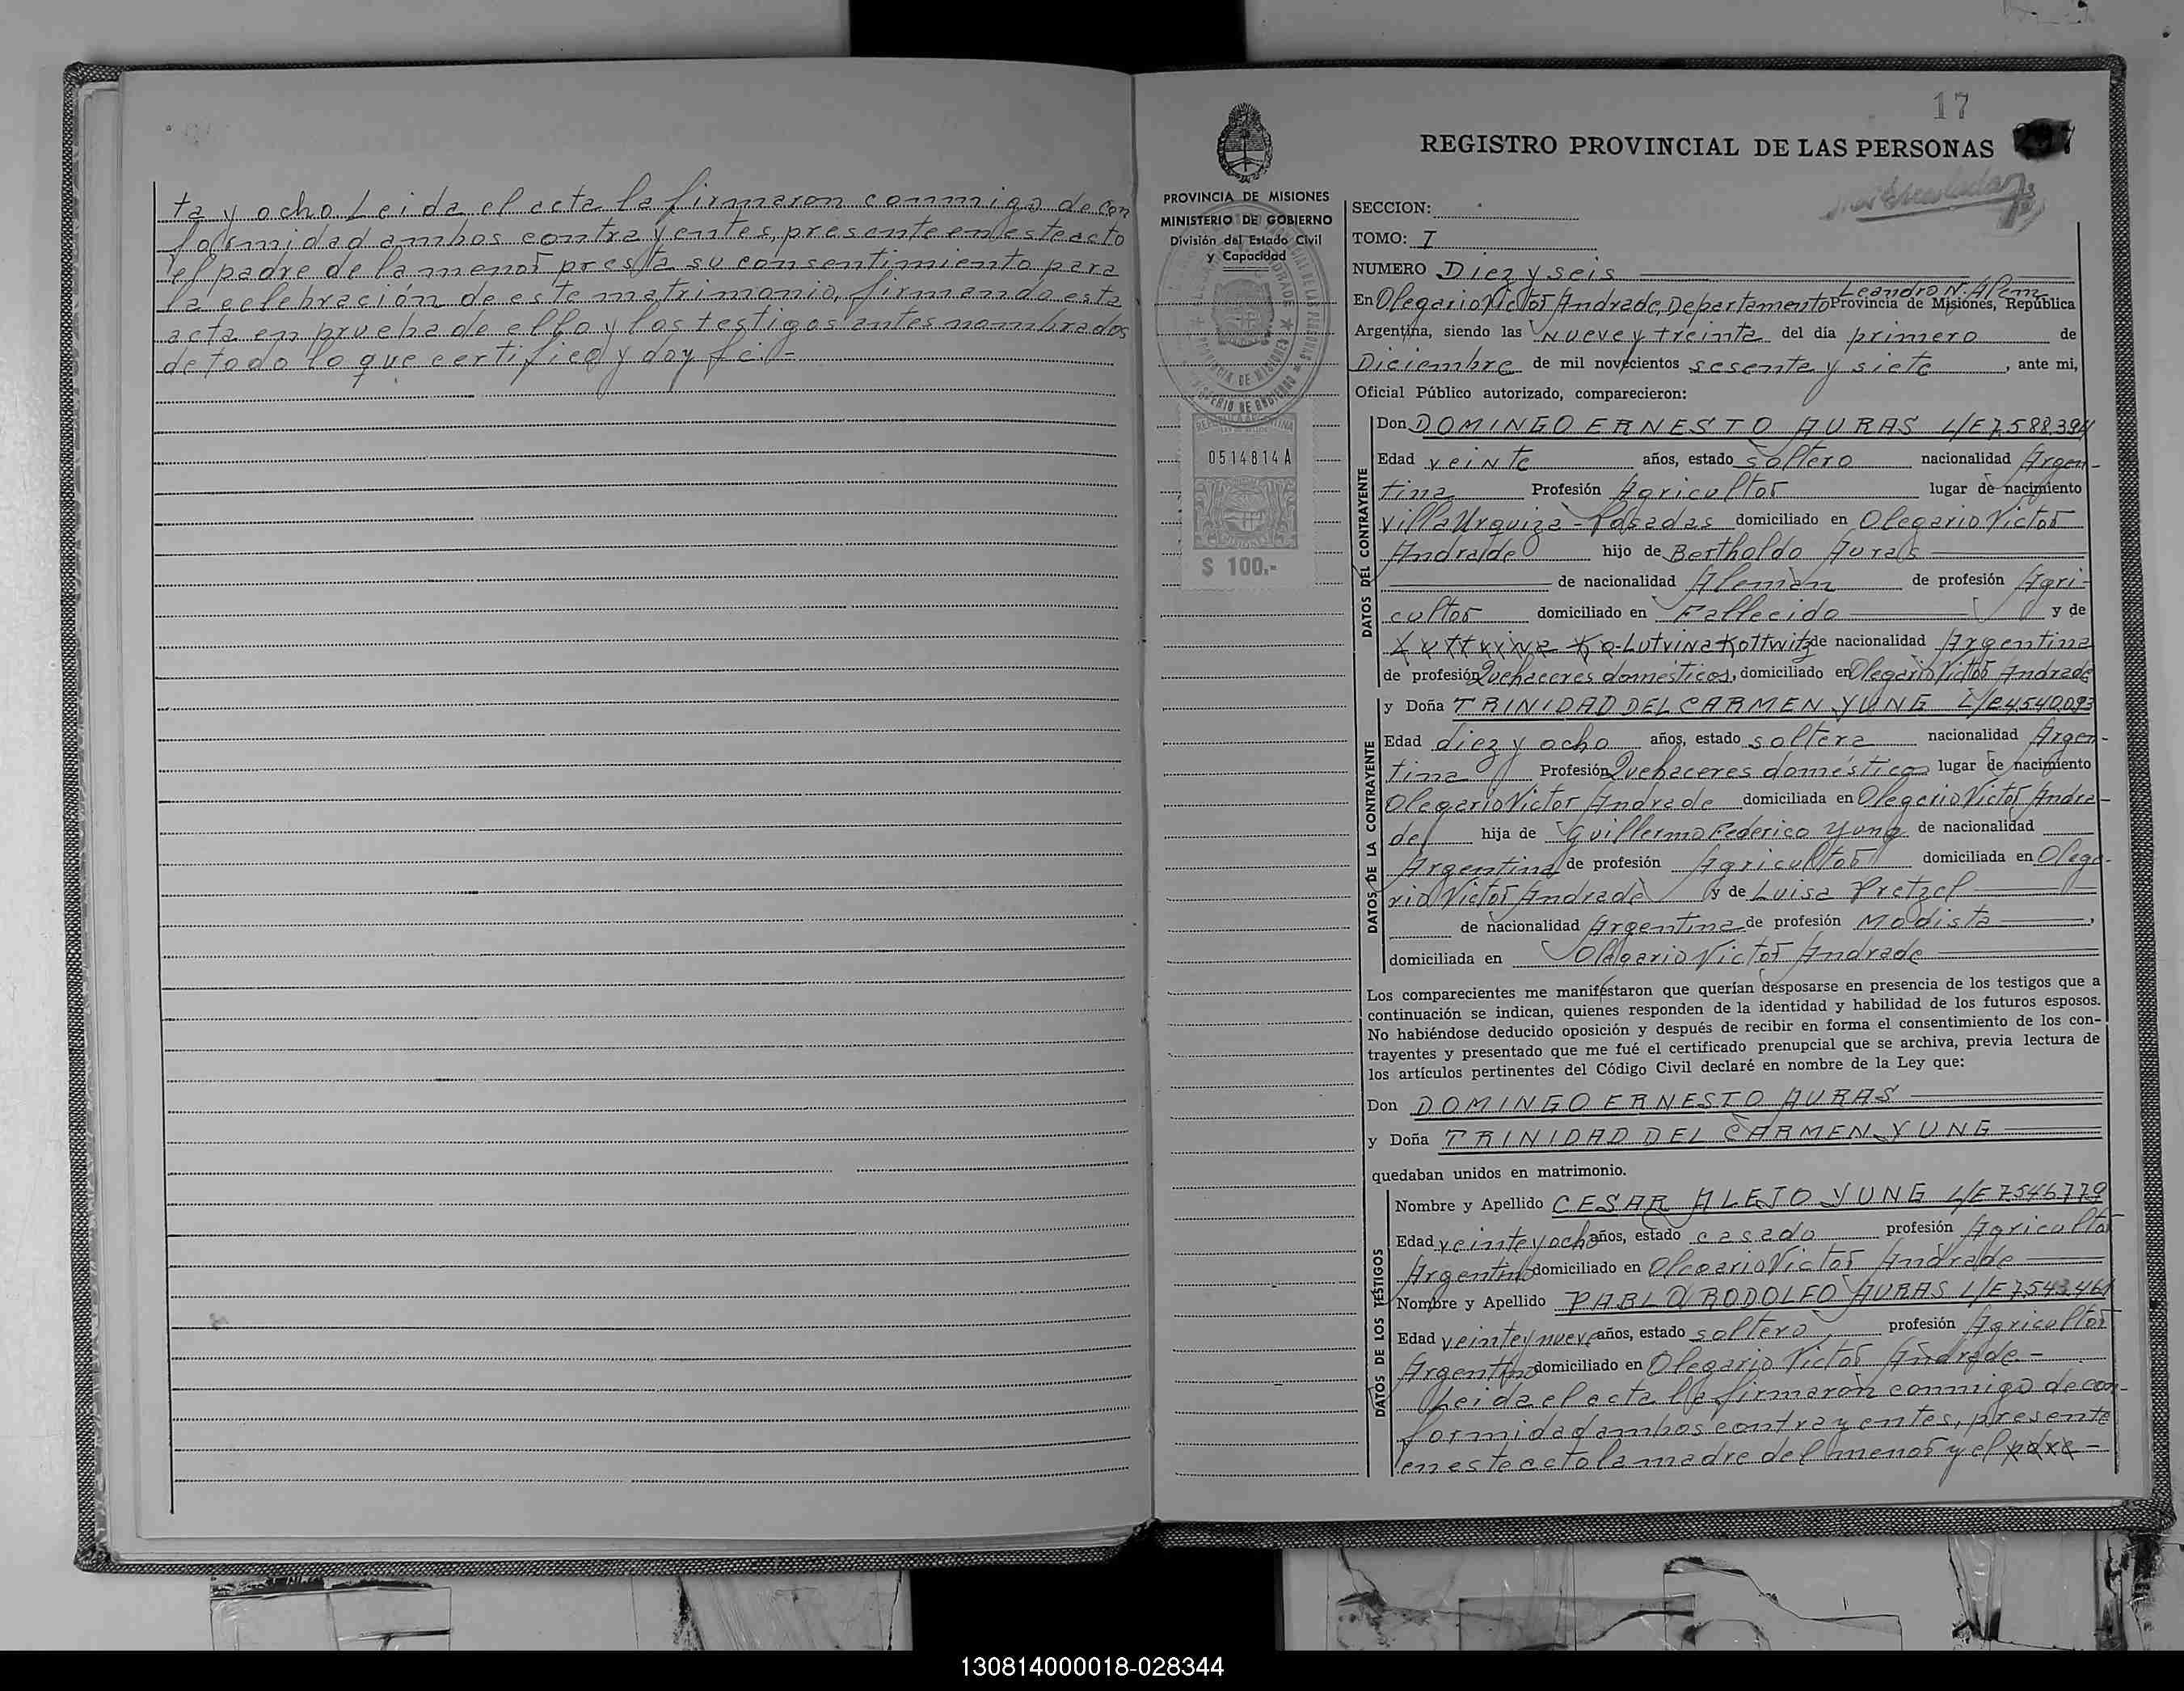 ta y ocho. Leida el acta la firmaron conmigo de con
formidad ambos contrayentes, presente en este acto
el padre de la menor presta su consentimiento para
la celebración de este matrimonio, firmando esta
acta en prueba de ello y los testigos antes nombrados
de todo lo que certifico y doy fe.-
17
REGISTRO PROVINCIAL DE LAS PERSONAS
PROVINCIA DE MISIONES
MINISTERIO DE GOBIERNO
División del Estado Civil
y Capacidad
0514814A
$ 100.-
SECCION:
TOMO: I
NUMERO Diez y seis
Leandro N. Alem
En Olegario Victor Andrade, Departamento Provincia de Misiones, República
Argentina, siendo las Nueve y treinta del día primero de
Diciembre de mil novecientos sesenta y siete, ante mi,
Oficial Público autorizado, comparecieron:
DATOS DEL CONTRAYENTE
Don DOMINGO ERNESTO AURAS L/E 7.588.394
Edad veinte años, estado soltero nacionalidad Argen-
tina Profesión Agricultor lugar de nacimiento
Villa Urquiza - Posadas domiciliado en Olegario Victor
Andrade hijo de Bertholdo Auras
de nacionalidad Alemàn de profesión Agri-
cultor domiciliado en Fallecido y de
Lutvina Kottwitz de nacionalidad Argentina
de profesión Quehaceres domésticos, domiciliado en Olegario Victor Andrade
DATOS DE LA CONTRAYENTE
y Doña TRINIDAD DEL CARMEN YUNG L/C 4.540.093
Edad diez y ocho años, estado soltera nacionalidad Argen-
tina Profesión Quehaceres domésticos lugar de nacimiento
Olegario Victor Andrade domiciliada en Olegario Victor Andra-
de hija de Guillermo Federico Yung de nacionalidad
Argentina de profesión Agricultor domiciliada en Olega-
rio Victor Andrade y de Luisa Pretzel
de nacionalidad Argentina de profesión Modista,
domiciliada en Olegario Victor Andrade
Los comparecientes me manifestaron que querían desposarse en presencia de los testigos que a
continuación se indican, quienes responden de la identidad y habilidad de los futuros esposos.
No habiéndose deducido oposición y después de recibir en forma el consentimiento de los con-
trayentes y presentado que me fué el certificado prenupcial que se archiva, previa lectura de
los artículos pertinentes del Código Civil declaré en nombre de la Ley que:
Don DOMINGO ERNESTO AURAS
y Doña TRINIDAD DEL CARMEN YUNG
quedaban unidos en matrimonio.
DATOS DE LOS TESTIGOS
Nombre y Apellido CESAR ALEJO YUNG L/E 7.546.779
Edad veinte y ocho años, estado casado profesión Agricultor
Argentino domiciliado en Olegario Victor Andrade
Nombre y Apellido PABLO RODOLFO AURAS L/E 7.543.461
Edad veinte y nueve años, estado soltero profesión Agricultor
Argentino domiciliado en Olegario Victor Andrade.-
Leida el acta la firmaron conmigo de con-
formidad ambos contrayentes, presente
en este acto la madre del menor y el padre -
130814000018-028344